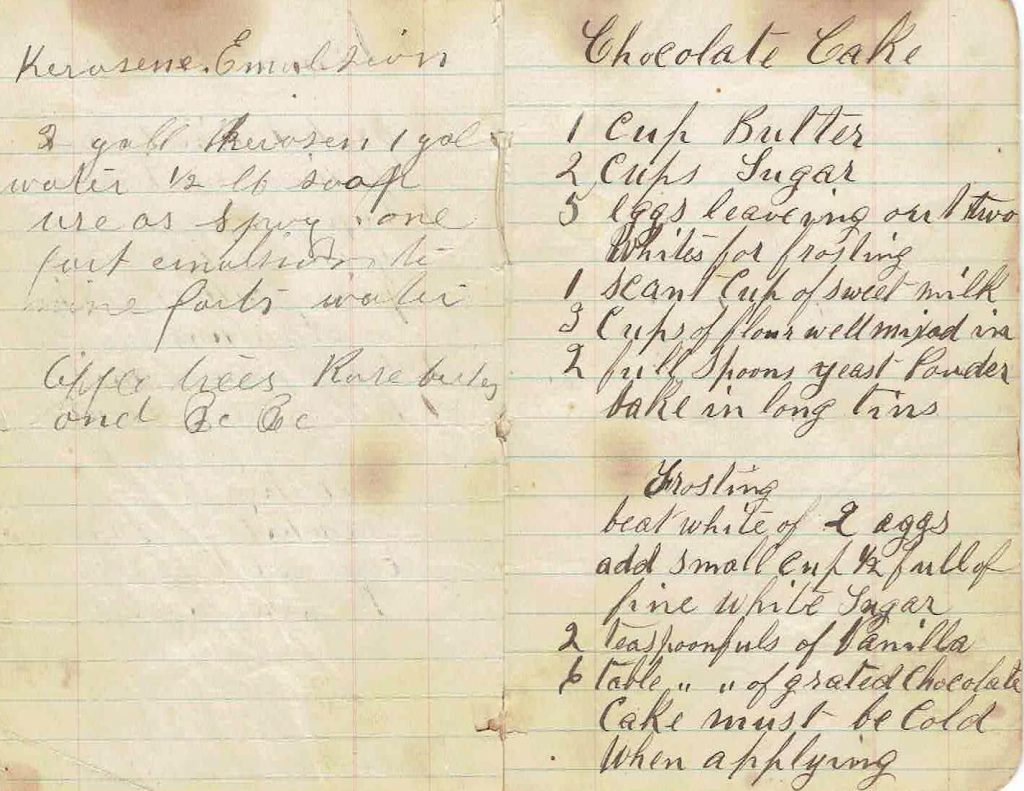 Kerosene Emulsion
2 gall Kerosen 1 gal
water 1/2 lb soap
use as Spray one
part emulsion to
nine parts water
trees Rose
and &c &c
Chocolate Cake
1 Cup Butter
2 Cups Sugar
5 eggs leaveing out two
Whites for frosting
1 scant Cup of sweet milk
3 Cups of flour well mixed in
2 full Spoons yeast Powder
bake in long tins
Frosting
beat white of 2 eggs
add small cup 1/2 full of
fine white Sugar
2 teaspoonfuls of Vanilla
6 table " " of grated Chocolate
Cake must be Cold
When applying